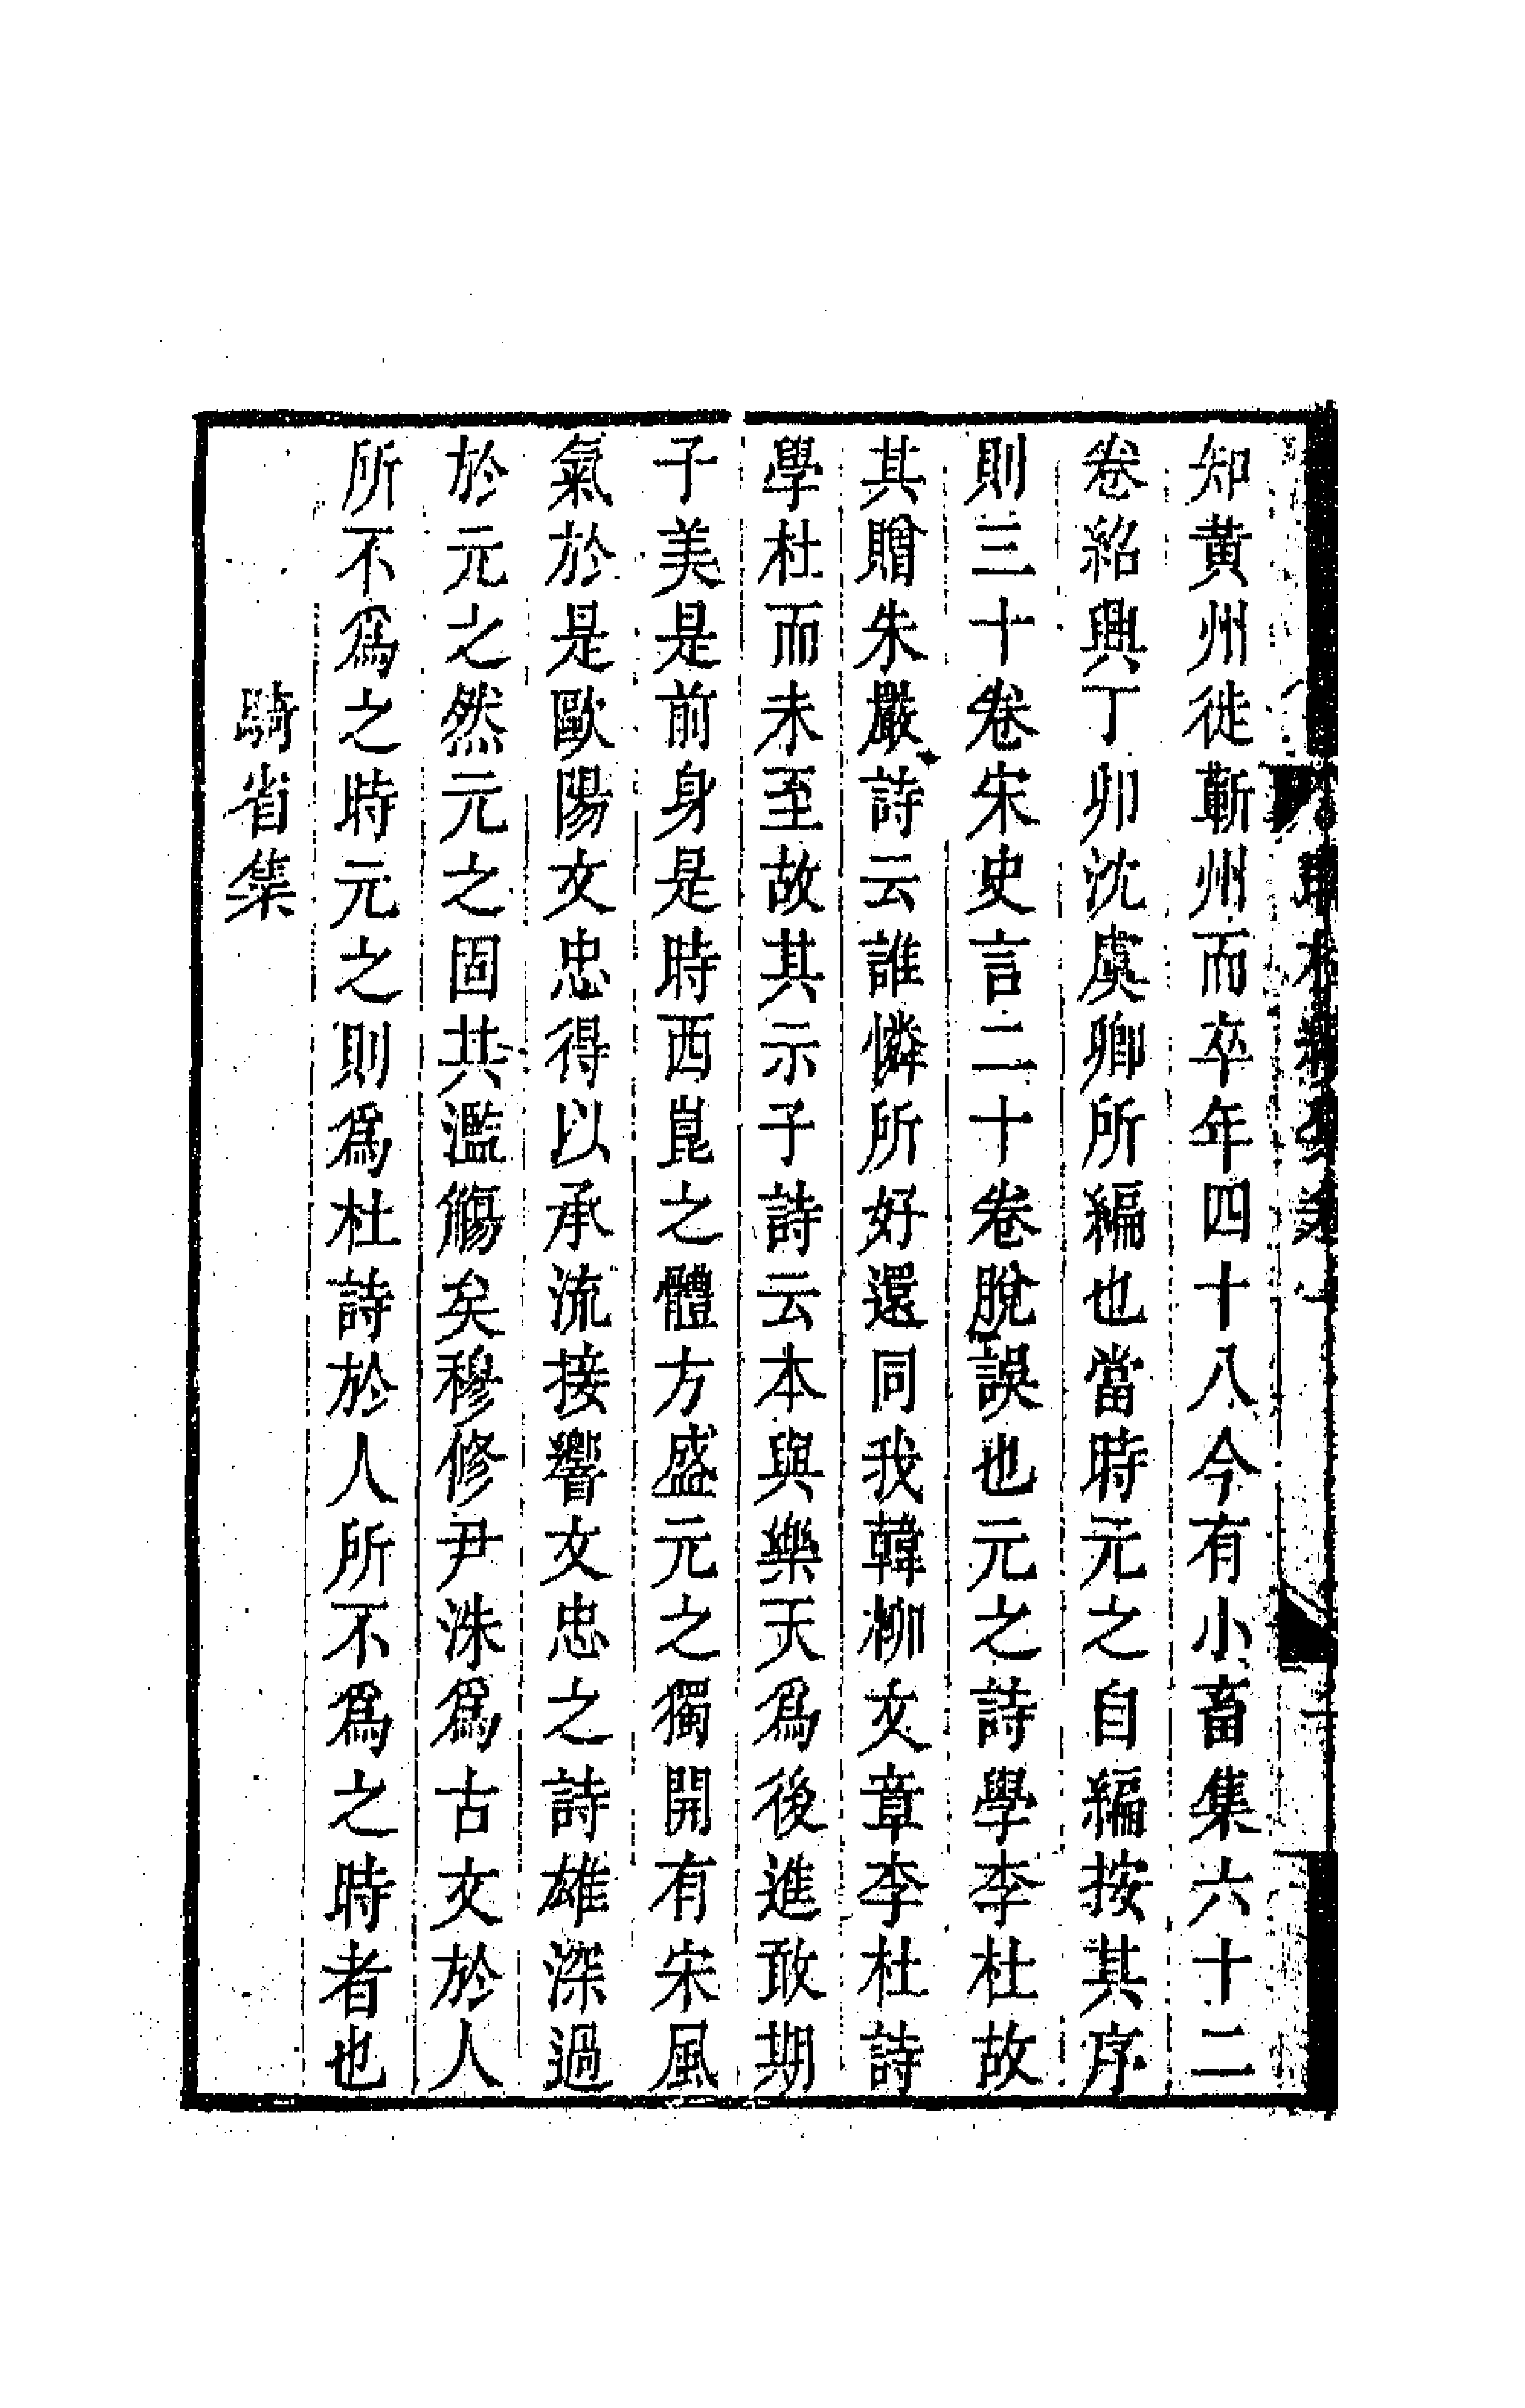 知黃州徙蘄州而卒年四十八今有小畜集六十二
卷紹興丁卯沈虞卿所編也當時元之自編按其序
則三十卷宋史言二十卷脫誤也元之詩學李杜故
其贈朱嚴詩云誰憐所好還同我韓柳文章李杜詩
學杜而未至故其示子詩云本與樂天為後進敢期
子美是前身是時西崑之體方盛元之獨開有宋風
氣於是歐陽文忠得以承流接響文忠之詩雄深過
於元之然元之固共濫觴矣穆修尹洙為古文於人
所不為之時元之則為杜詩於人所不為之時者也
騎省集